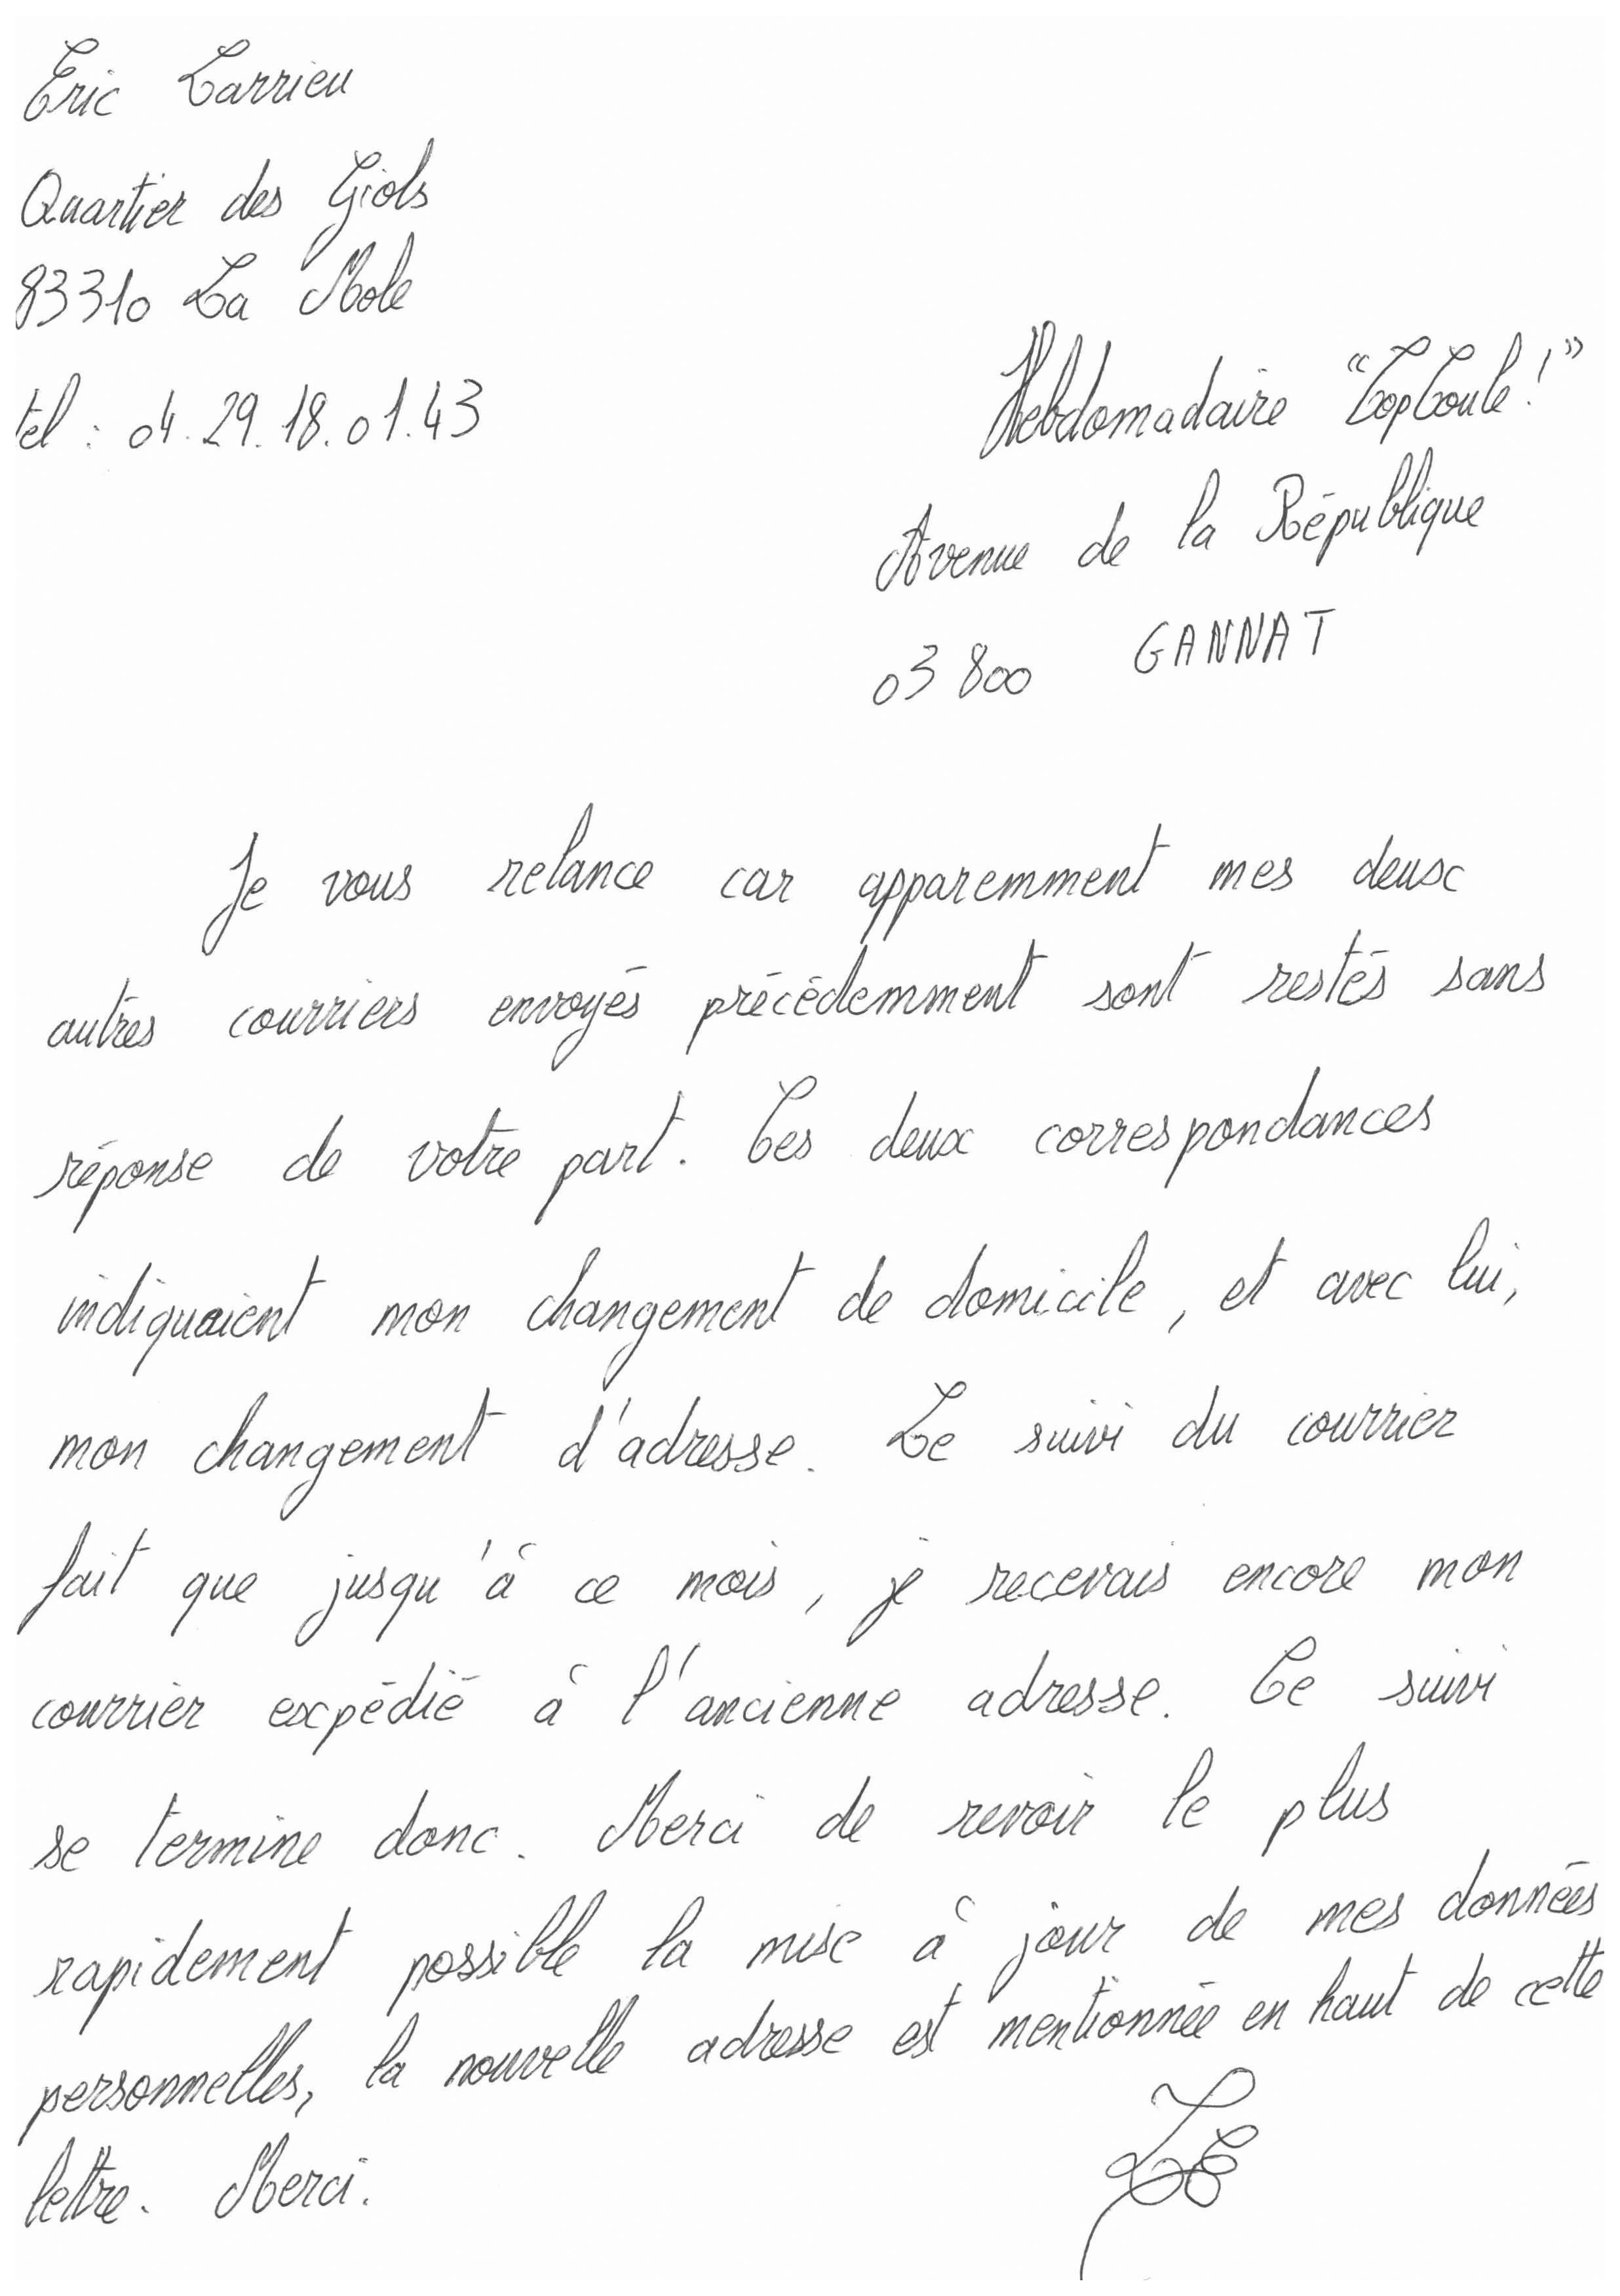 Eric Larrieu
Quartier des Giols
83310 La Mole
tel : 04.29.18.01.43
Hebdomadaire "TopCoule!"
Avenue de la République
03800 GANNAT
Je vous relance car apparemment mes deux
autres courriers envoyés précédemment sont restés sans
réponse de votre part. Ces deux correspondances
indiquaient mon changement de domicile, et avec lui,
mon changement d'adresse. Le suivi du courrier
fait que jusqu'à ce mois, je recevais encore mon
courrier expédié à l'ancienne adresse. Ce suivi
se termine donc. Merci de revoir le plus
rapidement possible la mise à jour de mes données
personnelles, la nouvelle adresse est mentionnée en haut de cette
lettre. Merci.